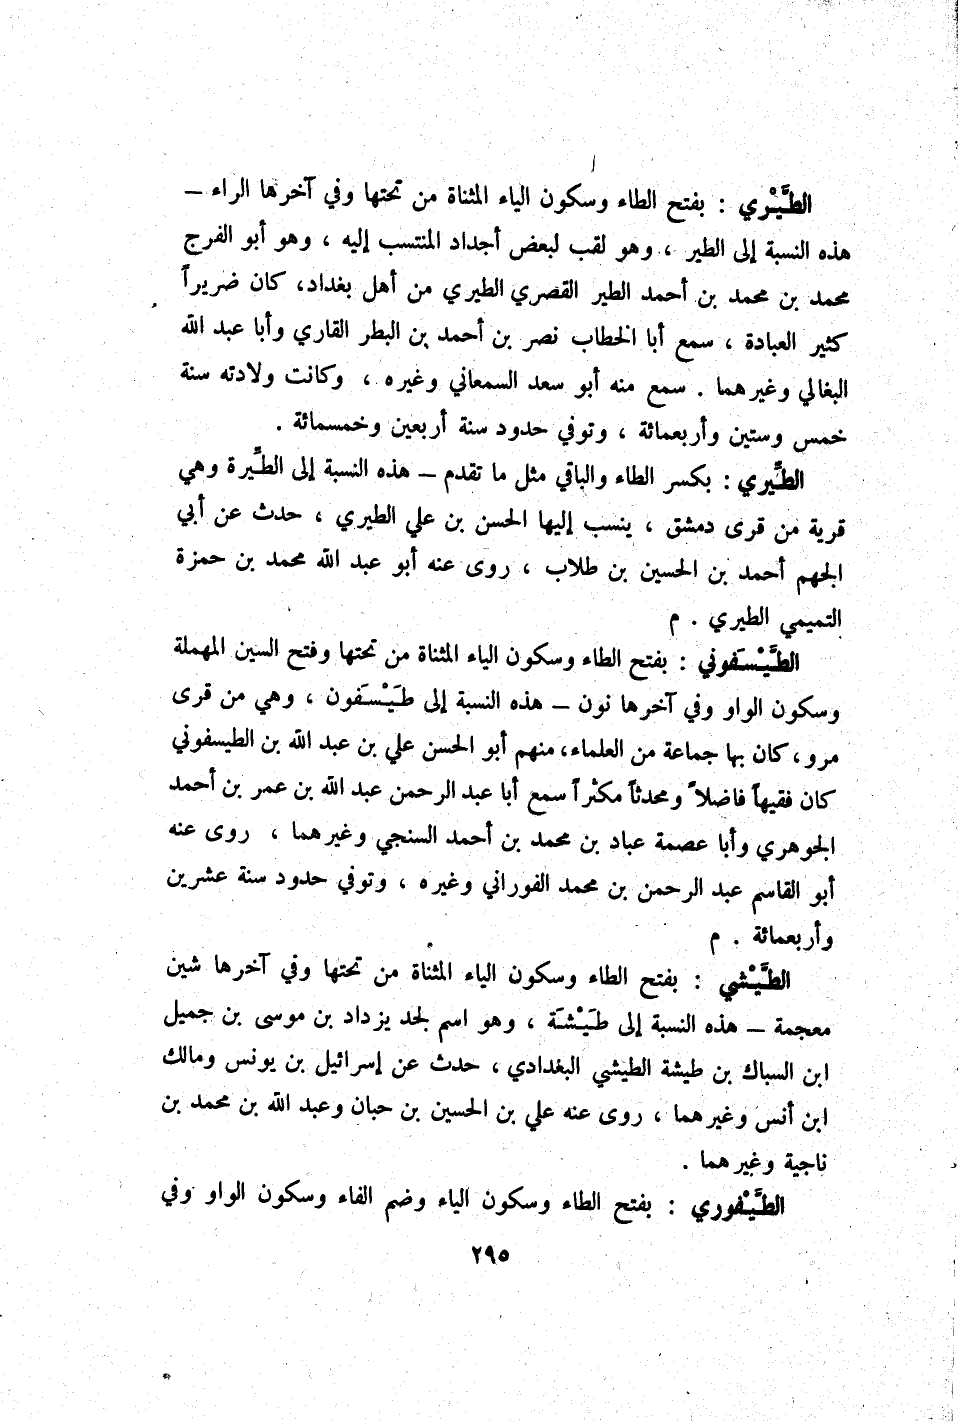 الطَّيْري : بفتح الطاء وسكون الياء المثناة من تحتها وفي آخرها الراء ــ
هذه النسبة إلى الطير ، وهو لقب لبعض أجداد المنتسب إليه ، وهو أبو الفرج
محمد بن محمد بن أحمد الطير القصري الطيري من أهل بغداد، كان ضريراً
كثير العبادة ، سمع أبا الخطاب نصر بن أحمد بن البطر القاري وأبا عبد الله
البغالي وغيرهما . سمع منه أبو سعد السمعاني وغيره ، وكانت ولادته سنة
خمس وستين وأربعمائة ، وتوفي حدود سنة أربعين وخمسمائة .
الطِّيري : بكسر الطاء والباقي مثل ما تقدم ــ هذه النسبة إلى الطِّيرة وهي
قرية من قرى دمشق ، ينسب إليها الحسن بن علي الطيري ، حدث عن أبي
الجهم أحمد بن الحسين بن طلاب ، روى عنه أبو عبد الله محمد بن حمزة
التميمي الطيري . م
الطَّيْسَفوني : بفتح الطاء وسكون الياء المثناة من تحتها وفتح السين المهملة
وسكون الواو وفي آخرها نون ــ هذه النسبة إلى طَيْسَفون ، وهي من قرى
مرو، كان بها جماعة من العلماء، منهم أبو الحسن علي بن عبد الله بن الطيسفوني
كان فقيهاً فاضلاً ومحدثاً مكثراً سمع أبا عبد الرحمن عبد الله بن عمر بن أحمد
الجوهري وأبا عصمة عباد بن محمد بن أحمد السنجي وغيرهما ، روى عنه
أبو القاسم عبد الرحمن بن محمد الفوراني وغيره ، وتوفي حدود سنة عشرين
وأربعمائة . م
الطَّيْشي : بفتح الطاء وسكون الياء المثناة من تحتها وفي آخرها شين
معجمة ــ هذه النسبة إلى طَيْشَة ، وهو اسم لجد يزداد بن موسى بن جميل
ابن السباك بن طيشة الطيشي البغدادي، حدث عن إسرائيل بن يونس ومالك
ابن أنس وغيرهما ، روى عنه علي بن الحسين بن حبان وعبد الله بن محمد بن
ناجية وغيرهما .
الطَّيْفوري : بفتح الطاء وسكون الياء وضم الفاء وسكون الواو وفي
٢٩٥